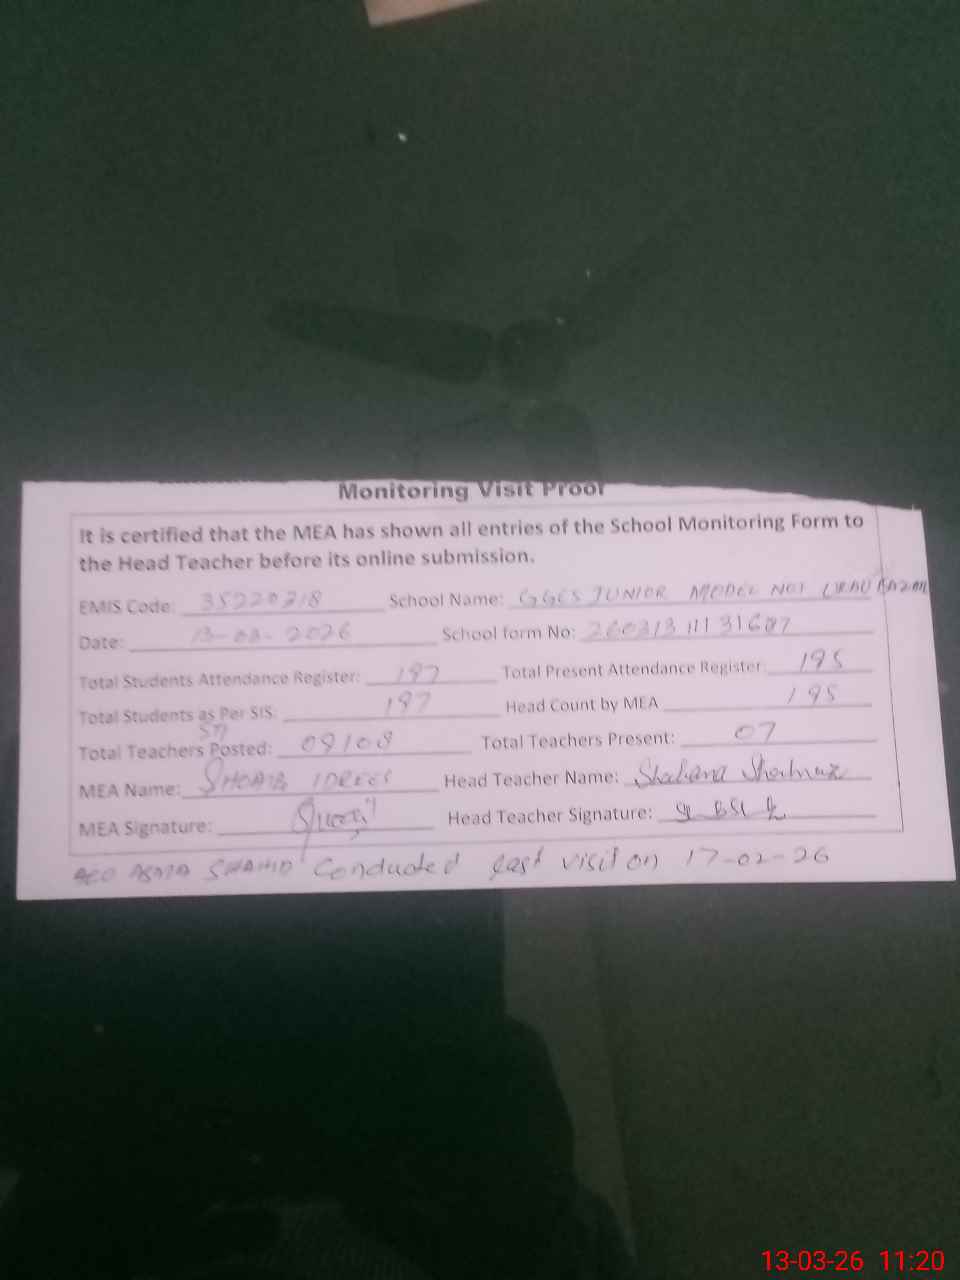 Monitoring Visit Proof
It is certified that the MEA has shown all entries of the School Monitoring Form to
the Head Teacher before its online submission.
EMIS Code: 35220218 School Name: GGES JUNIOR MODEL NO1 URDU BAZAR
Date: 13-03-2026 School form No:
Total Students Attendance Register: 197 Total Present Attendance Register: 195
Total Students as Per SIS: 197 Head Count by MEA 195
Total Teachers Posted: Total Teachers Present: 07
MEA Name: SHOAIB IDREES Head Teacher Name: Shahana Shahnaz
MEA Signature: Head Teacher Signature:
AEO ASMA Conducted last visit on 17-02-26
13-03-26 11:20